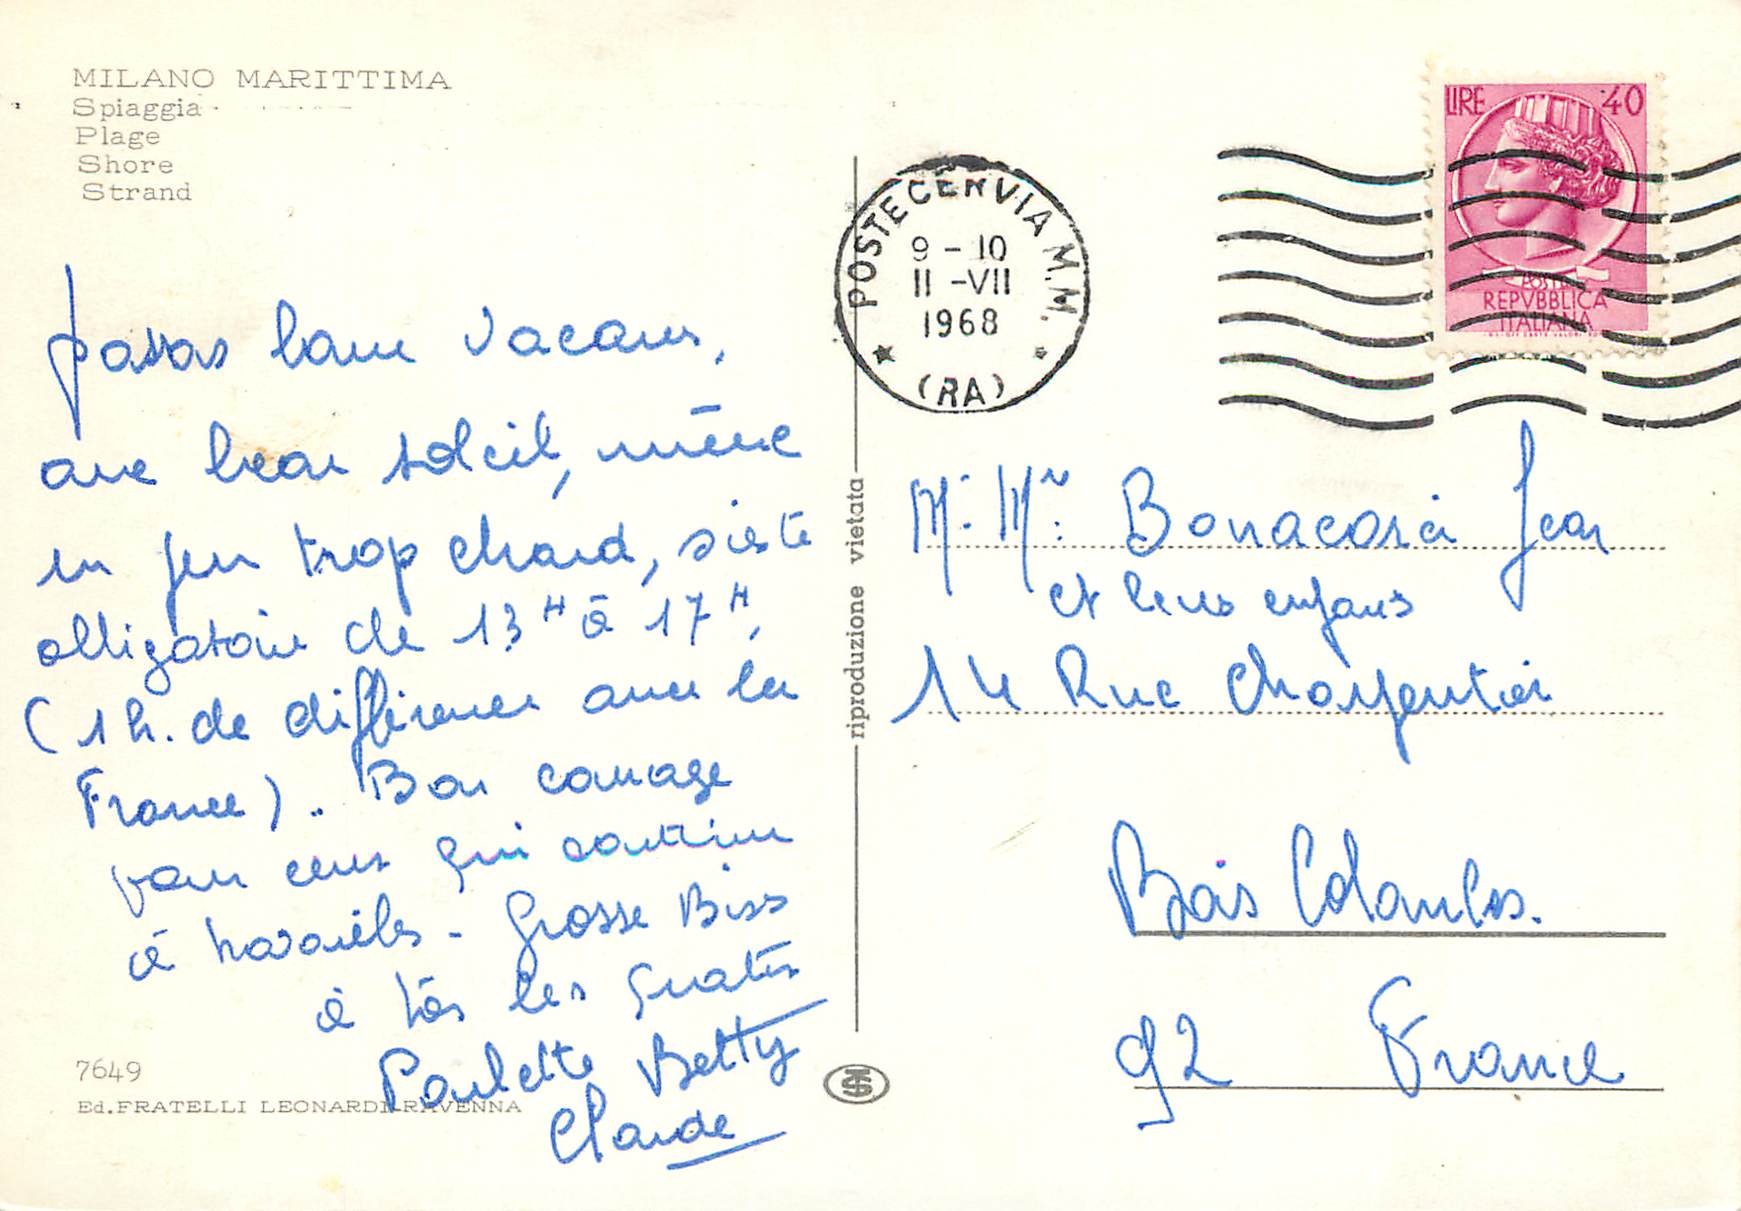 MILANO MARITTIMA
Spiaggia
Plage
Shore
Strand
passons bonne vacances,
avec beau soleil, même
un peu trop chaud, sieste
obligatoire de 13H à 17H,
(1h. de différence avec la
France). Bon courage
pour ceux qui continue
à travailler - Grosse Biss
à tos les quatre
Paulette Betty
Claude
7649
Ed. FRATELLI LEONARDI-RAVENNA
riproduzione vietata
POSTE CERVIA M.M.
9 - 10
11 -VII
1968
(RA)
LIRE 40
POSTE
REPVBBLICA
ITALIANA
M. Mr. Bonacorsi Jean
et leurs enfants
14 Rue Charpentier
Bois Colombes.
92 France